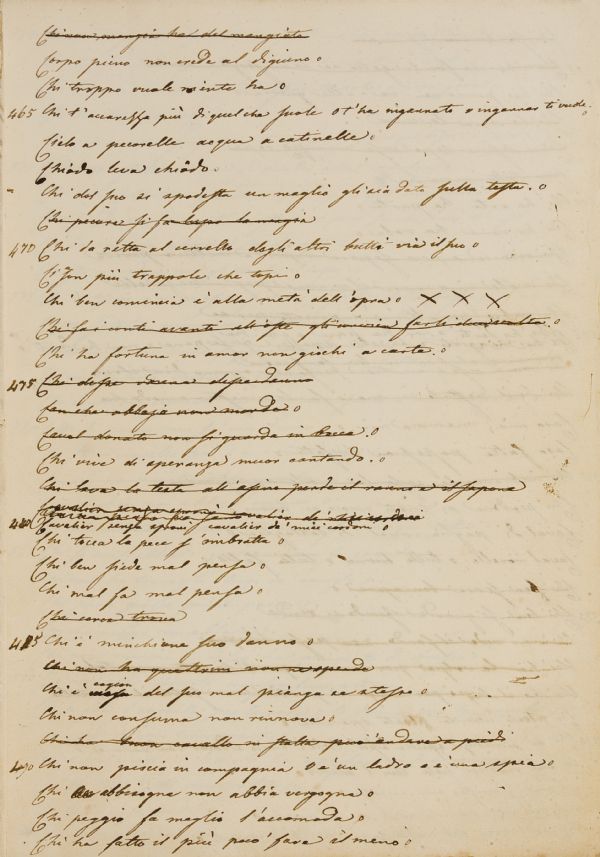 Chi non mangia ha del mangiato
Corpo pieno non crede al digiuno
Chi troppo vuole niente ha
465 Chi t'accarezza più di quel che suole o t'ha ingannato o ingannar ti vuole.
Cielo a pecorelle acqua a catinelle
Chiodo leva chiodo.
Chi del suo si spodesta un maglio gli sia dato sulla testa.
Chi pecora si fa lupo la mangia
470 Chi da retta al cervello degli altri butti via il suo
Ci son più trappole che topi
Chi ben comincia è alla metà dell'opra X X X
Chi fa i conti avanti all'oste gli convien farli due volte.
Chi ha fortuna in amor non giochi a carte.
475 Chi disse donna disse danno
Can che abbaja non morde
Caval donato non si guarda in bocca.
Chi vive di speranza muor cantando.
Chi lava la testa all'asino perde il ranno e il sapone
480 Cavalier senza sproni cavalier de' miei cordoni
Chi tocca la pece s'imbratta
Chi ben siede mal pensa
Chi mal fa mal pensa
Chi cerca trova
485 Chi è minchione suo danno
Chi non ha quattrini non ne spende
Chi è cagion del suo mal pianga se stesso
Chi non consuma non rinnova
Chi ha buon cavallo in stalla può andare a piedi
490 Chi non piscia in compagnia o è un ladro o è una spia
Chi abbisogna non abbia vergogna
Chi peggio fa meglio l'accomoda
Chi ha fatto il più può fare il meno